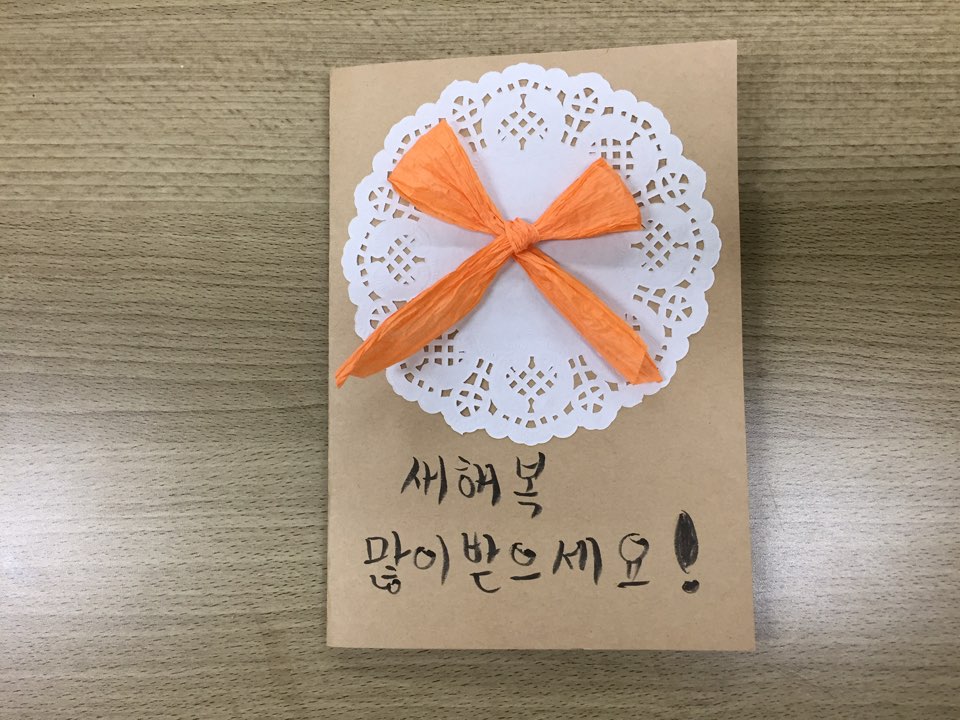 새해 복
많이 받으세요!